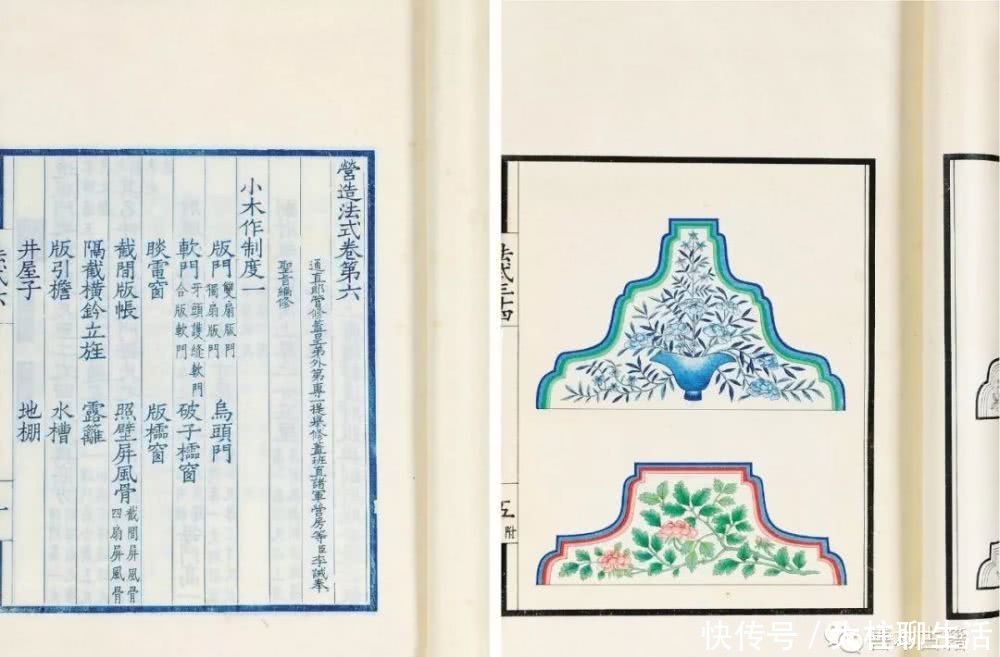 營造法式卷第六
通直郎管修蓋皇弟外第專一提舉修蓋班直諸軍營房等臣李誡奉
聖旨編修
小木作制度一
版門 雙扇版門 獨扇版門 烏頭門
軟門 牙頭護縫軟門 合版軟門 破子櫺窗
睒電窗 版櫺窗
截間版帳 照壁屏風骨 截間屏風骨 四扇屏風骨
隔截橫鈐立旌 露籬
版引檐 水槽
井屋子 地棚
法式六
一
法式三十四
五 附
快传号 / 柱聊生活